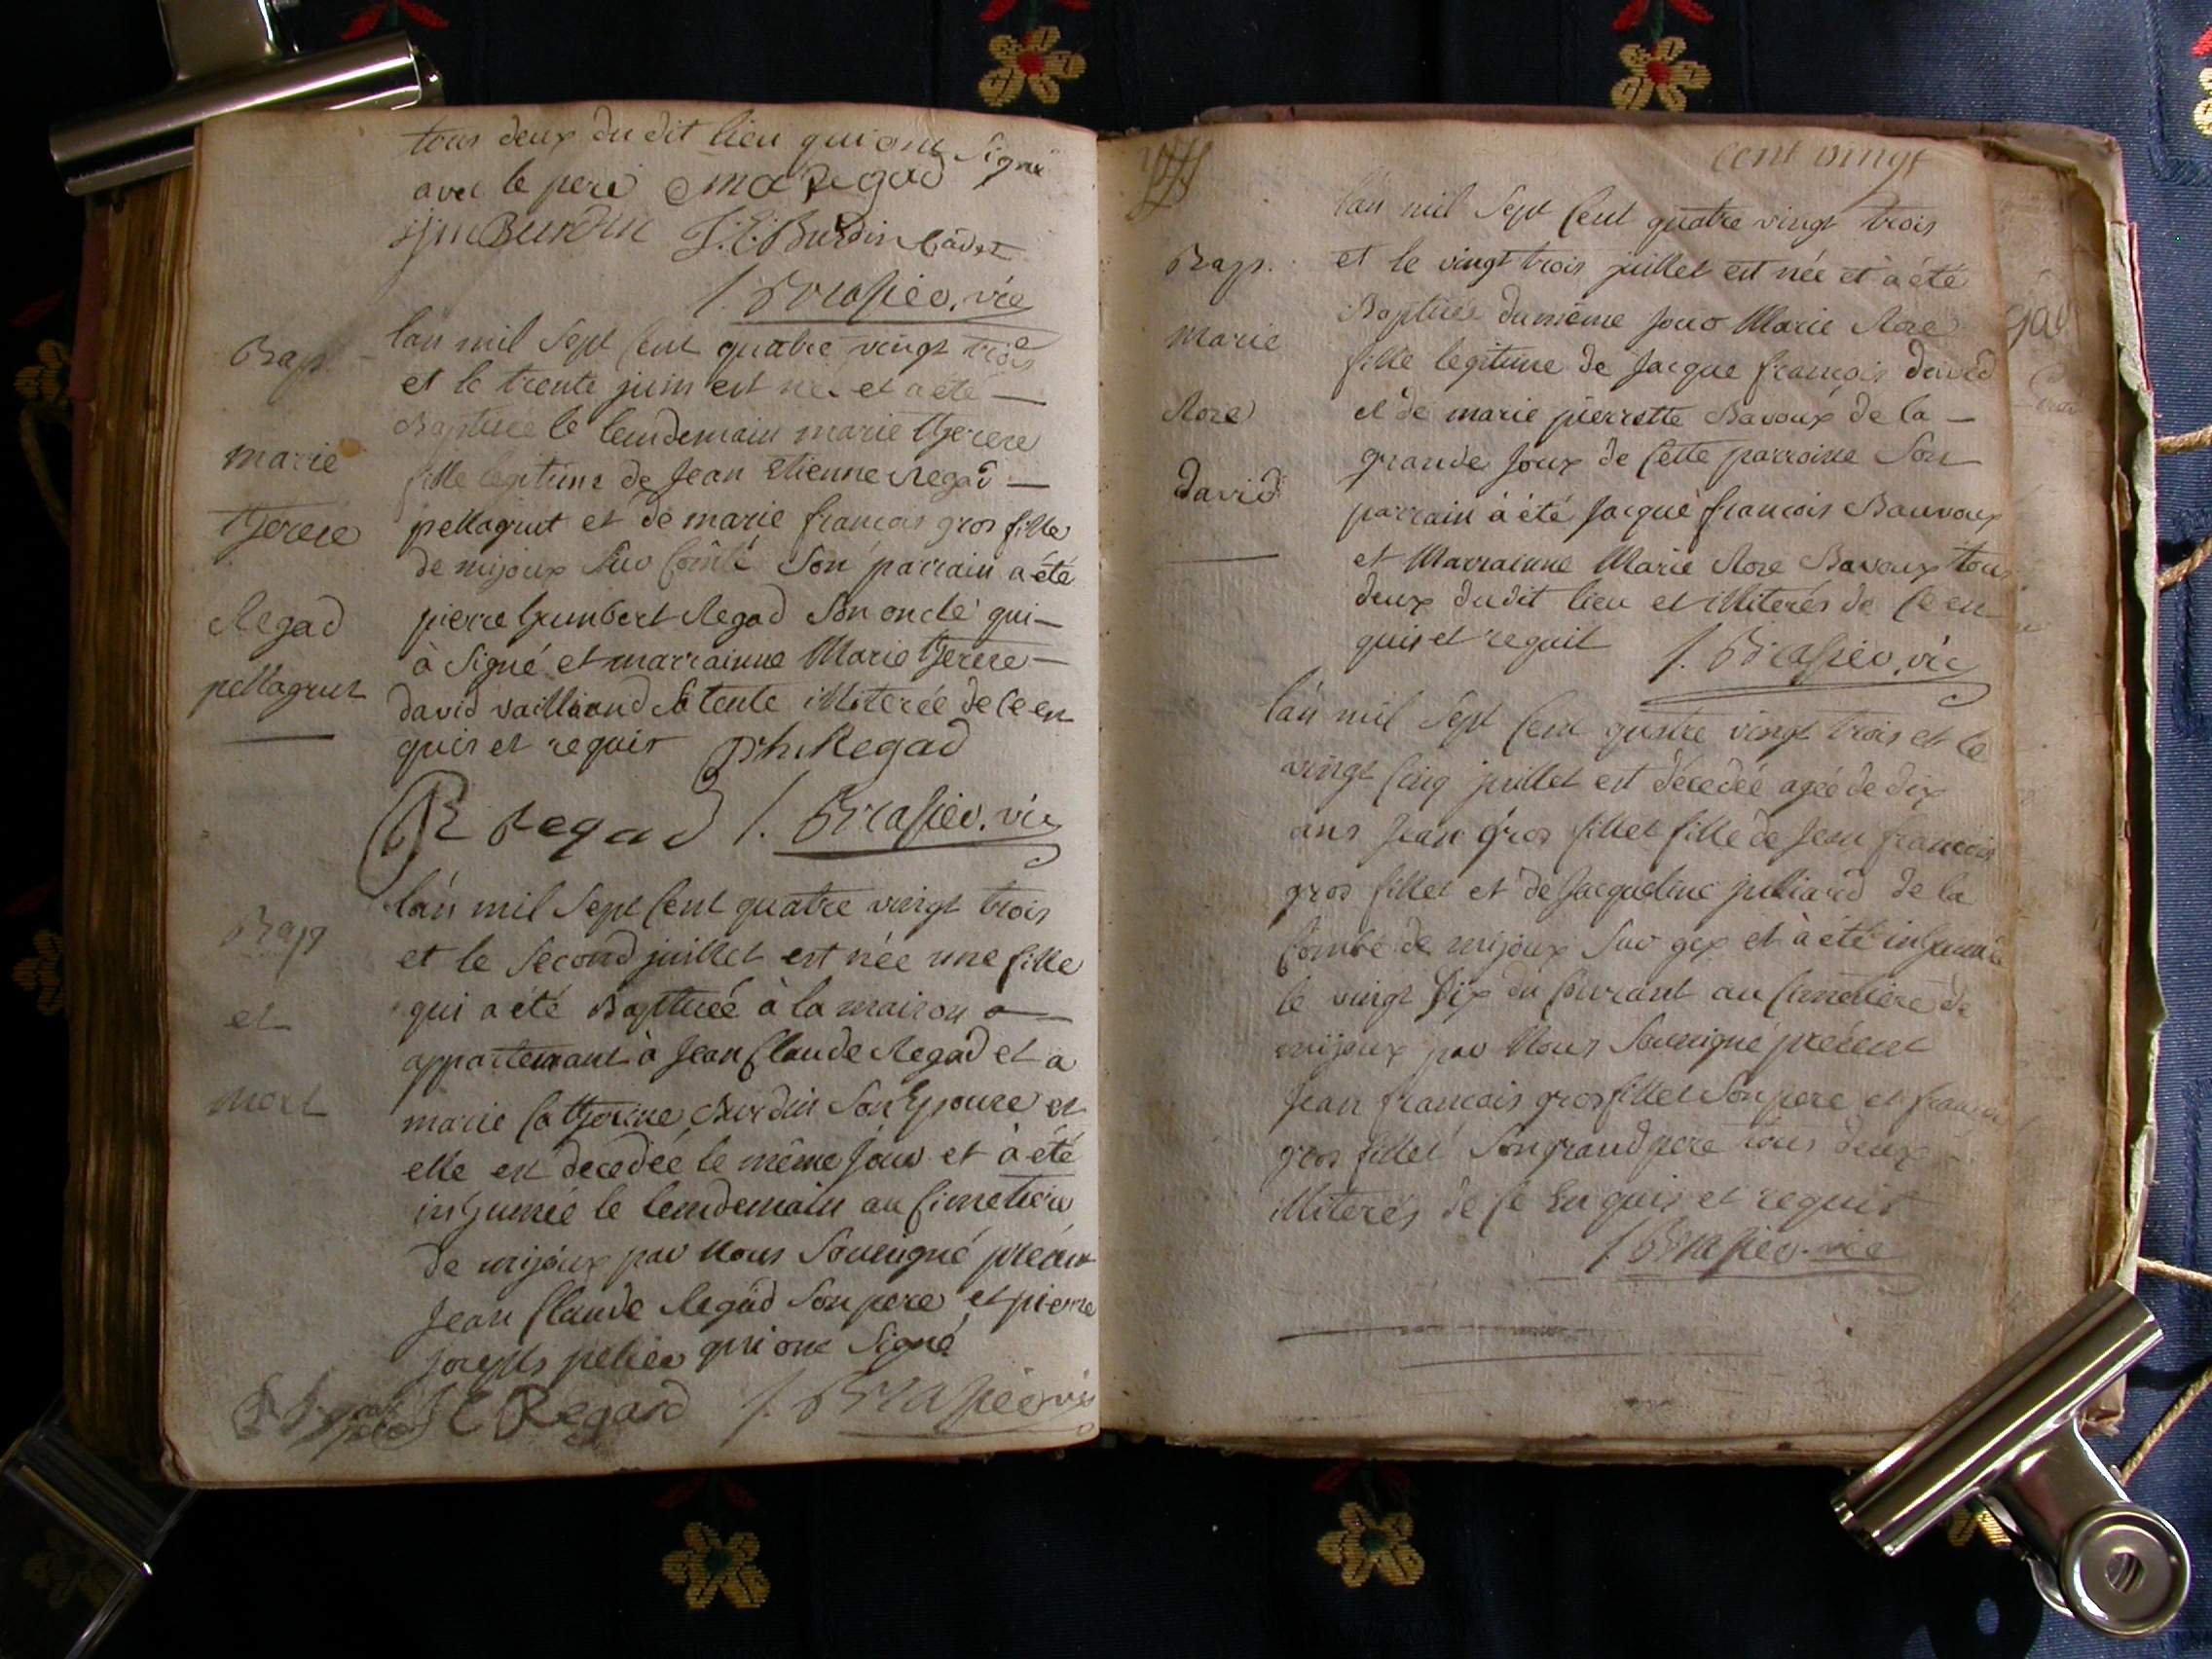 tous deux du dit lieu qui ont signé
avec le pere
Burdin J. E. Burdin Cadet
Brasier. vic
Bap.
marie
therese
Regad
pellagrut
lan mil sept cent quatre vingt trois
et le trente juin est née et a été
Baptisée le lendemain marie therese
fille legitime de Jean Etienne Regad
pellagrut et de marie francois gros fille
de mijoux sur Comté son parrain a été
pierre humbert Regad son oncle qui
à signé et marrainne Marie therese
david vailliand sa tente illiterée de ce en
quis et requis phRegad
Regad J. Brasier. vic
Bap
et
mort
lan mil sept cent quatre vingt trois
et le second juillet est née une fille
qui a été Baptisée à la maison
appartenant à Jean Claude Regad et a
marie Catherine Burdin son Epouse et
elle est decedée le même jour et à été
inhumée le lendemain au Cimetiere
de mijoux par Nous soussigné présent
Jean Claude Regad son pere et pierre
joseph qui ont signé
J C Regard J. Brasier vic
cent vingt
Bap.
Marie
Rose
david
lan mil sept cent quatre vingt trois
et le vingt trois juillet est née et à été
Baptisée du même jour Marie Rose
fille legitime de Jacque francois david
et de marie pierrette Bavoux de la
grande joux de cette parroisse son
parrain à été Jacque francois Bauvoux
et Marrainne Marie Rose Bavoux tous
deux dudit lieu et illiterés de ce en
quis et requit J. Brasier. vic
lan mil sept cent quatre vingt trois et le
vingt cinq juillet est décedée agée de dix
ans Jean gros fillet fille de Jean francois
gros fillet et de Jacqueline julliard de la
Combe de mijoux sur gex et à été inhumée
le vingt six du Courant au Cimetiere de
mijoux par Nous soussigné présent
Jean francois gros fillet son pere et francois
gros fillet son grand pere tous deux
illiterés de ce Enquis et requis
J. Brasier. vic